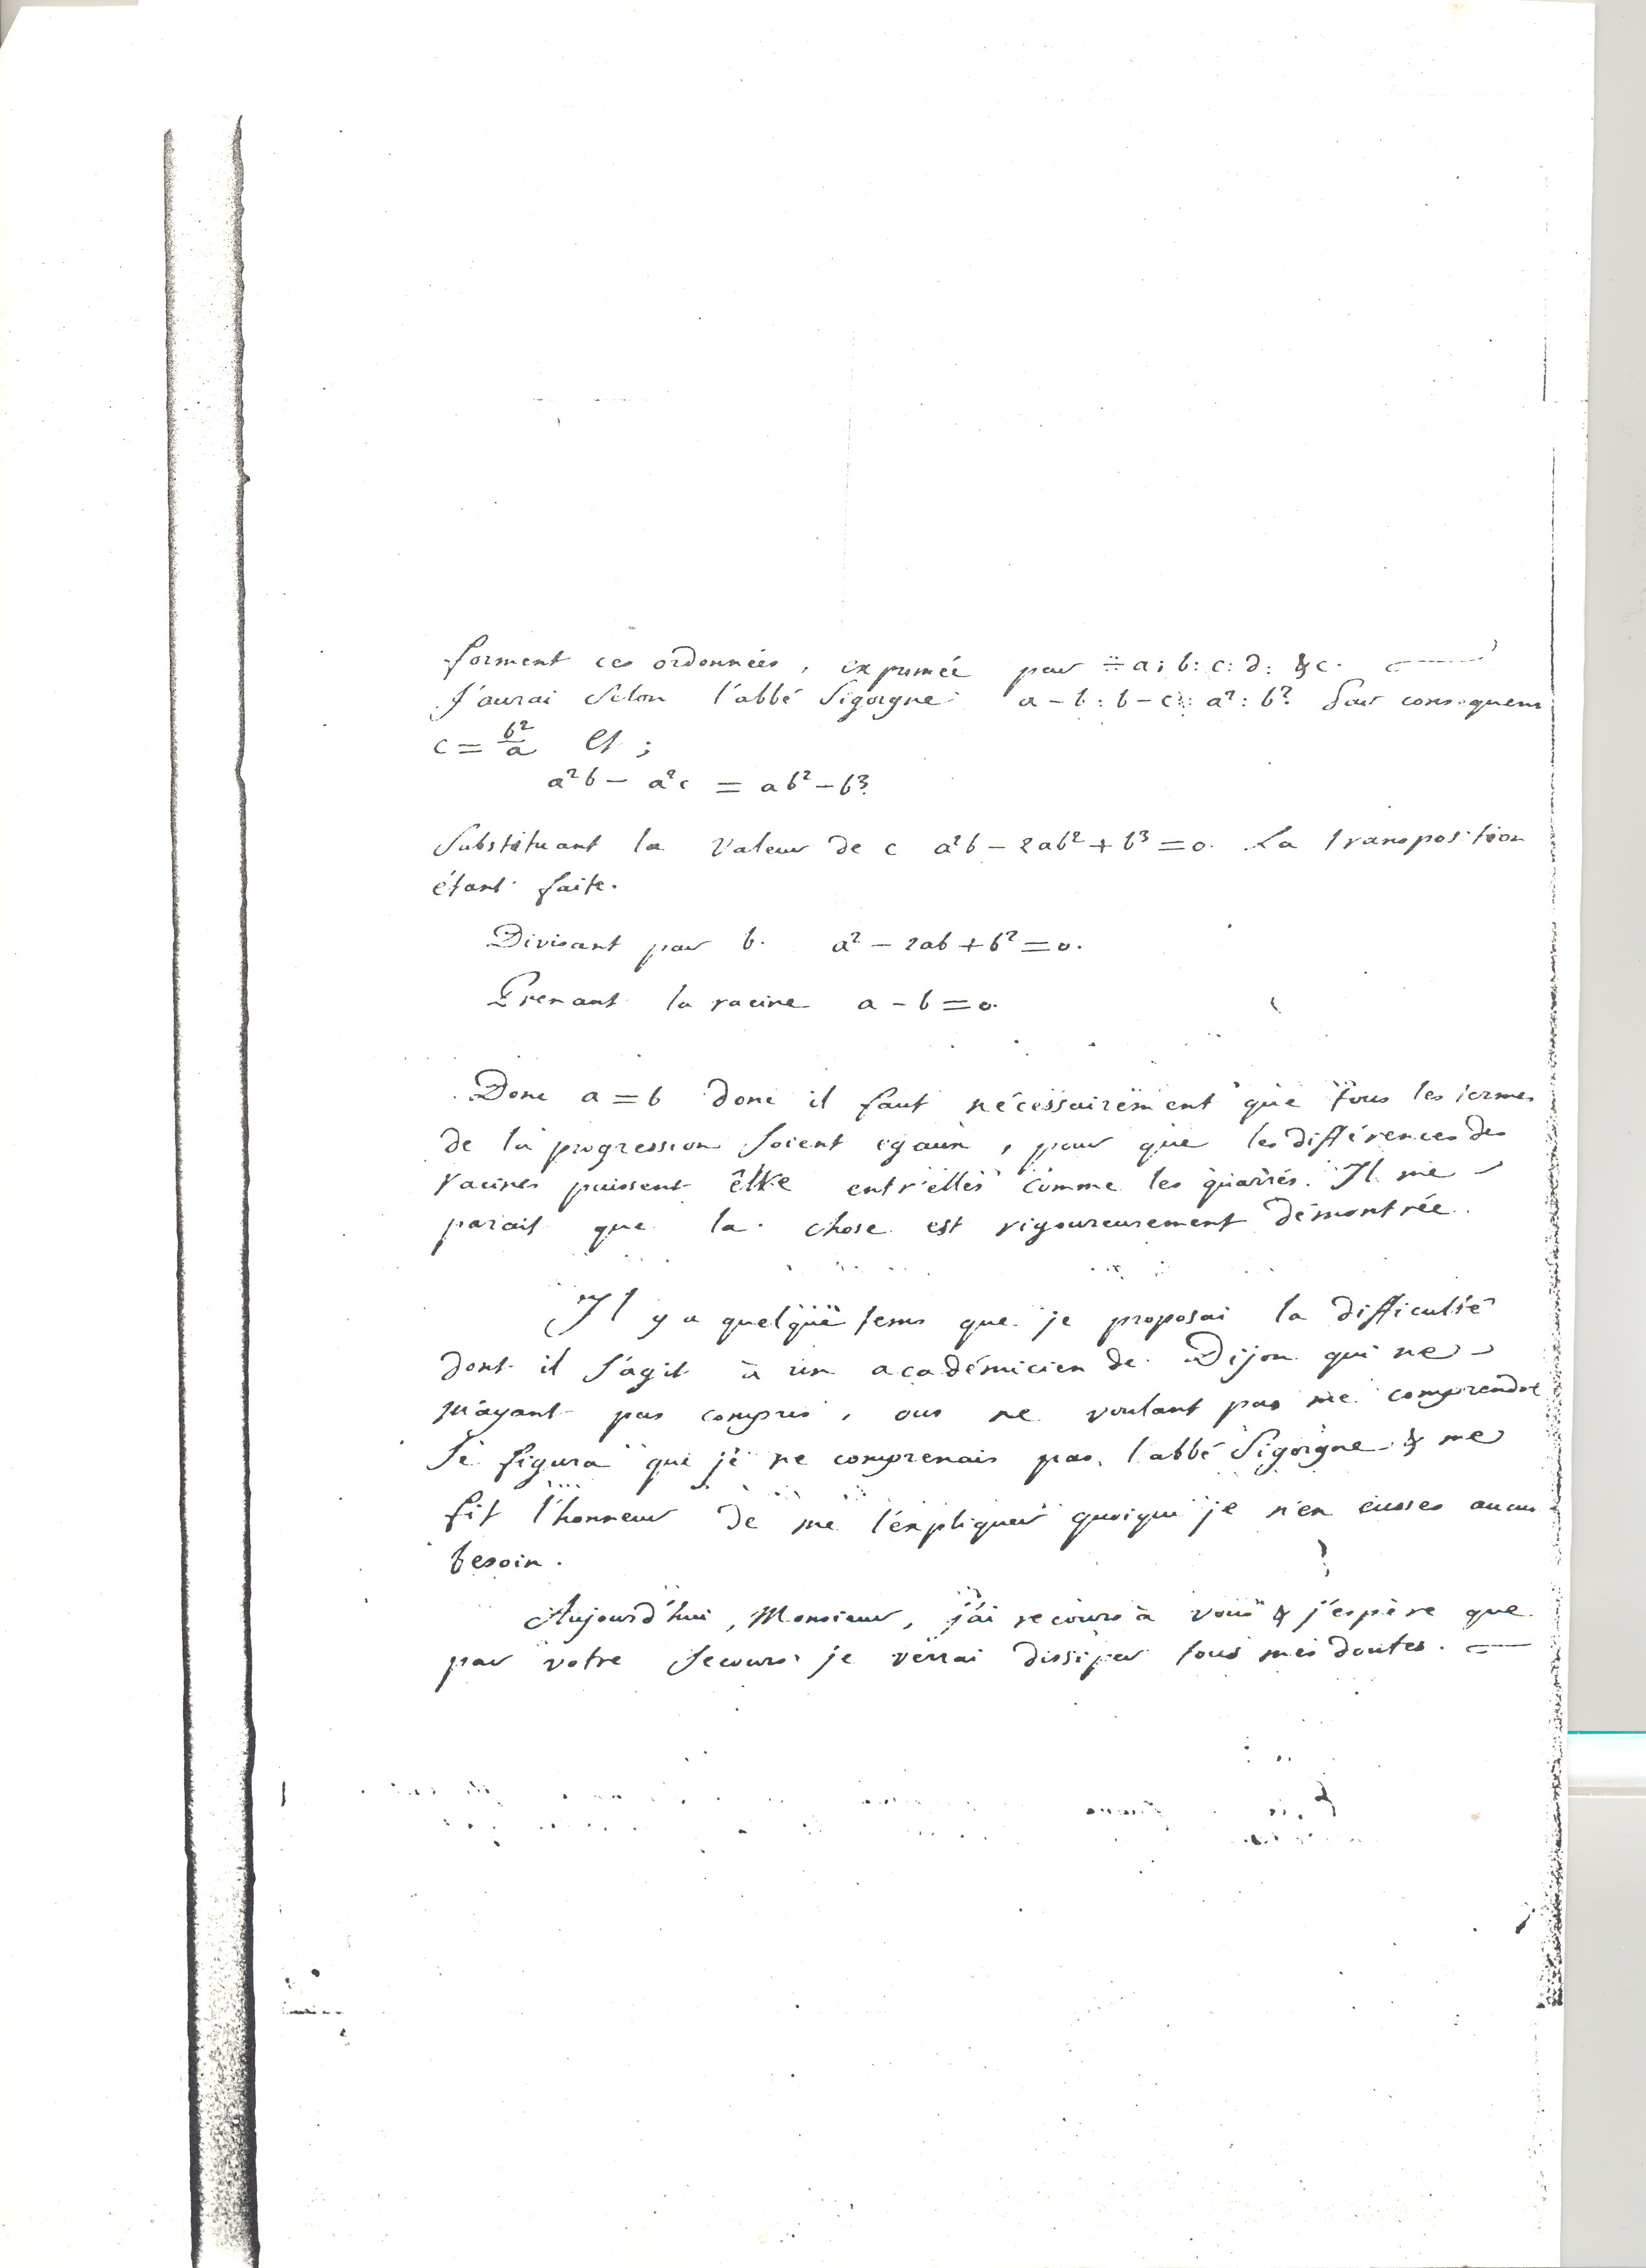 forment ces ordonnées, exprimée par ∺ a : b : c : d : &c.
J'aurai Selon l'abbé Sigorgne a - b : b - c :: a² : b². Par consequent
c = b²/a Et ;
a²b - a²c = ab² - b³.
Substituant la Valeur de c a²b - 2ab² + b³ = 0. La transposition
étant faite.
Divisant par b. a² - 2ab + b² = 0.
Prenant la racine a - b = 0.
Donc a = b donc il faut nécessairement que tous les termes
de la progression Soient egaux, pour que les différences des
racines puissent être entr'elles comme les quarrés. Il me
parait que la chose est rigoureusement démontrée.
Il y a quelque tems que je proposai la difficulté
dont il S'agit à un académicien de Dijon qui ne
m'ayant pas compris, ou ne voulant pas me comprendre
Se figura que je ne comprenais pas l'abbé Sigorgne & me
fit l'honneur de me l'expliquer quoique je n'en eusses aucun
besoin.
Aujourd'hui, Monsieur, j'ai recours à vous & j'espère que
par votre Secours je verrai dissiper tous mes doutes.